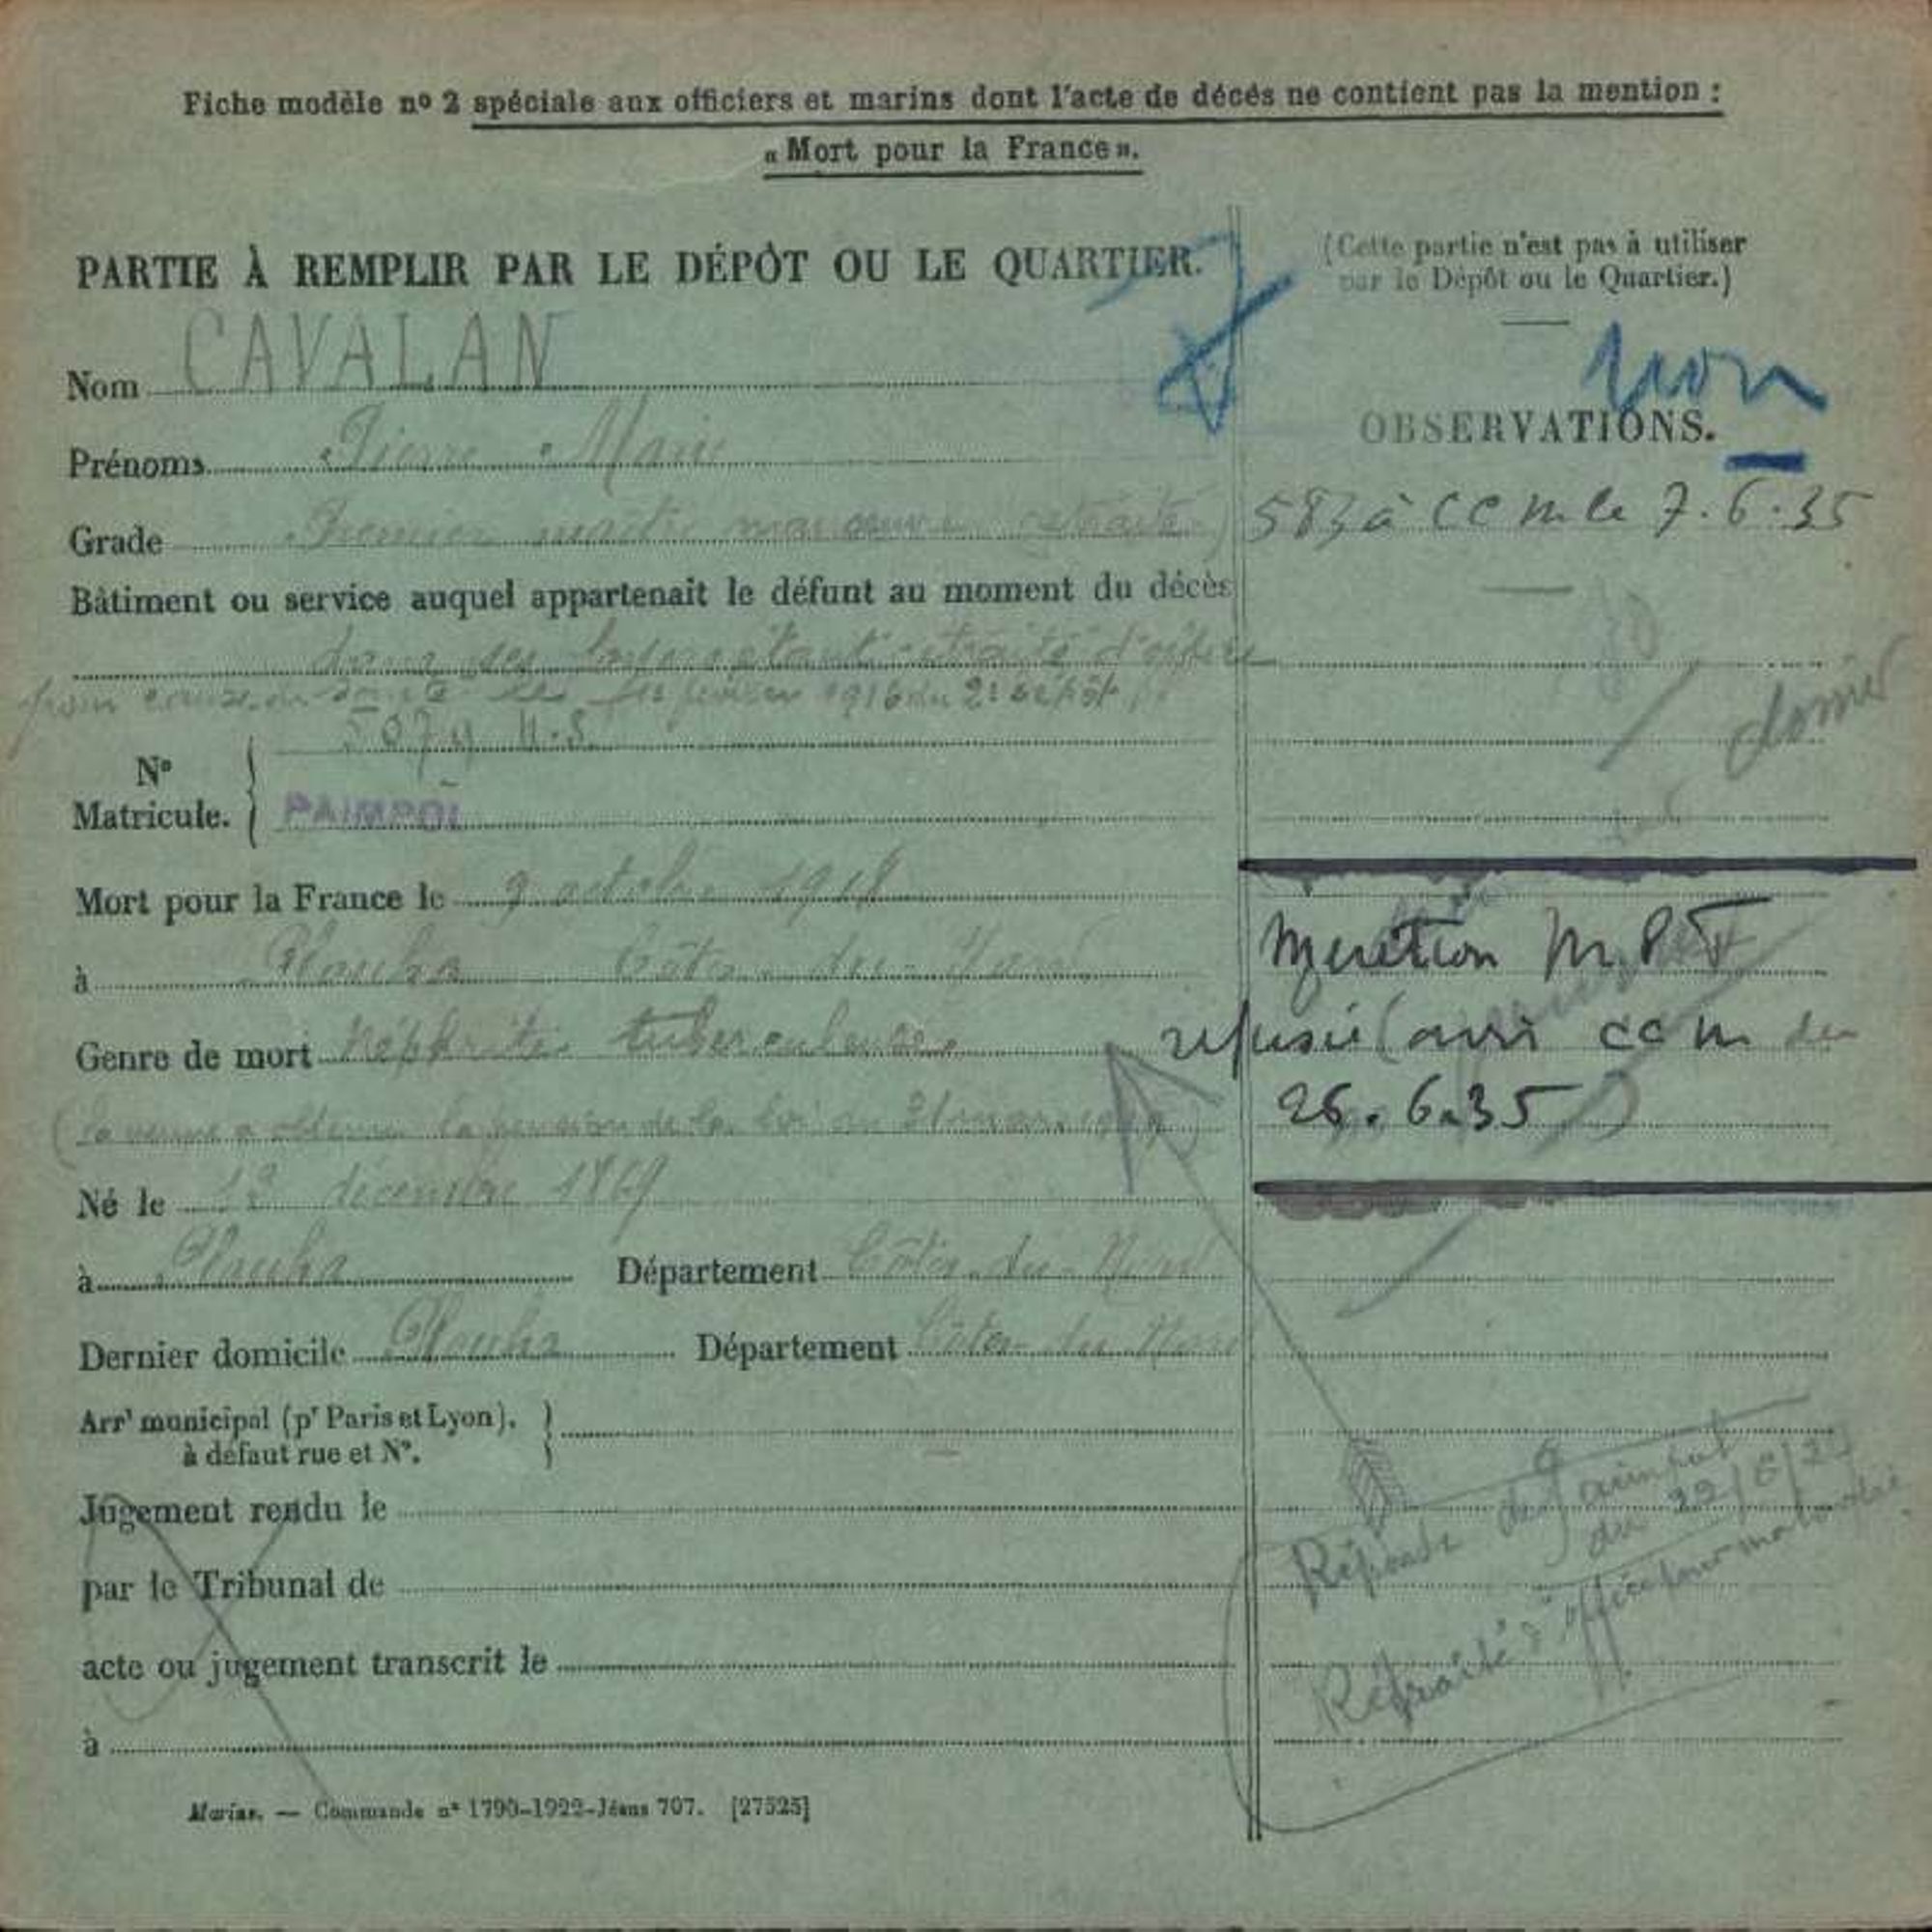 Fiche modèle nº 2 spéciale aux officiers et marins dont l'acte de décès ne contient pas la mention :
« Mort pour la France ».
PARTIE À REMPLIR PAR LE DÉPÔT OU LE QUARTIER.
Nom CAVALAN
Prénoms Pierre Marie
Grade Premier maître manœuvre retraité
Bâtiment ou service auquel appartenait le défunt au moment du décès
dans ses foyers étant retraité d'office
pour cause de santé le 1er février 1916 du 2e dépôt
5079 N.S.
Nº Matricule. PAIMPOL
Mort pour la France le 9 octobre 1918
à Plouha Côtes-du-Nord
Genre de mort Néphrite tuberculeuse
(la veuve a obtenu la pension de la loi du 31 mars 1919)
Né le 13 décembre 1869
à Plouha Département Côtes-du-Nord
Dernier domicile Plouha Département Côtes-du-Nord
Arrt municipal (pr Paris et Lyon),
à défaut rue et Nº.
Jugement rendu le
par le Tribunal de
acte ou jugement transcrit le
à
Marine. — Commande nº 1790-1922-Jéans 707. [27525]
(Cette partie n'est pas à utiliser
par le Dépôt ou le Quartier.)
non
OBSERVATIONS.
583 à CCM le 7.6.35
Mention M.P.F
refusée (avis CCM du
26.6.35)
Réponse de Paimpol
du 22/6/22
Retraité d'office pour maladie